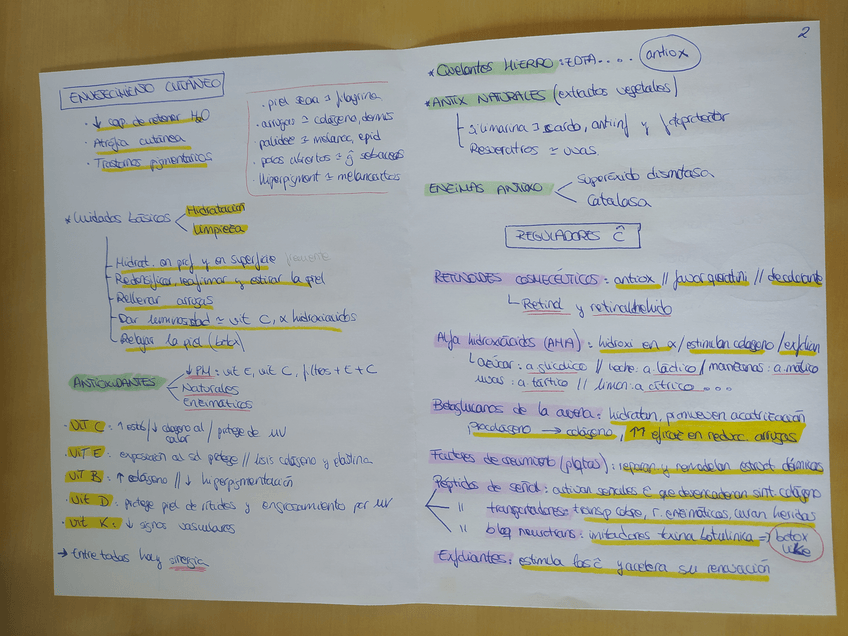 ENVEJECIMIENTO CUTÁNEO
· ↓ cap de retener H2O
· Atrofia cutánea
· Trastornos pigmentarios
· piel seca ≅ filagrina
· arrugas ≅ colágeno, dermis
· palidez ≅ melanoc, epid
· poros abiertos ≅ ĝ sebaceas
· Hiperpigment ≅ melanocitos
* Cuidados básicos
Hidratación
Limpieza
Hidrat. en prof y en superficie
Redensificar, reafirmar y estirar la piel
Rellenar arrugas
Dar luminosidad ≅ vit C, α hidroxiacidos
Relajar la piel (botox)
ANTIOXIDANTES
↓ PM: vit E, vit C, filtros + E + C
Naturales
Enzimáticos
· VIT C: ↑ / ↓ colageno al / protege de UV
calor
· VIT E: exposición al sol protege // lisis colágeno y elastina
· VIT B: ↑ colágeno // ↓ hiperpigmentación
· VIT D: protege piel de rítidos y engrosamiento por UV
· VIT K: ↓ signos vasculares
→ Entre todas hay sinergia
2
* Quelantes HIERRO: EDTA....
antiox
* ANTIX NATURALES (extractos vegetales)
Silimarina ≅ cardo, antiinf y fotoprotector
Resveratros ≅ uvas.
ENZIMAS ANTIOXO
Superóxido dismutasa
Catalasa
REGULADORES ĉ
RETINOIDES COSMECÉUTICOS: antiox // favor queratini // decolorante
Retinol y retinaldehido
Alfa hidroxiácidos (AHA): hidroxi en α / estimulan colageno / exfolian
azúcar: a glicólico // leche: a láctico / manzanas: a. málico
uvas: a tártico // limón: a cítrico ...
Betaglucanos de la avena: hidratan, promueven acicatrización
procolágeno → colágeno, ↑↑ eficac en reducc. arrugas
Factores de crecimiento (plaqtas): reparan y remodelan estruct dérmicas
Péptidos de señal: activan señales ĉ que desencadenan sint. colágeno
" transportadores: transp cobre, r. enzimáticos, curan heridas
" bloq neurotrans: imitadores toxina botulinica ⇒ botox
like
Exfoliantes: estimula las ĉ y acelera su renovación